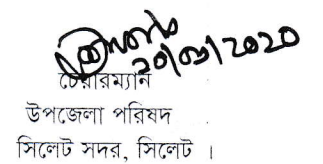 ২০/০৯/২০২০
চেয়ারম্যান
উপজেলা পরিষদ
সিলেট সদর, সিলেট ।